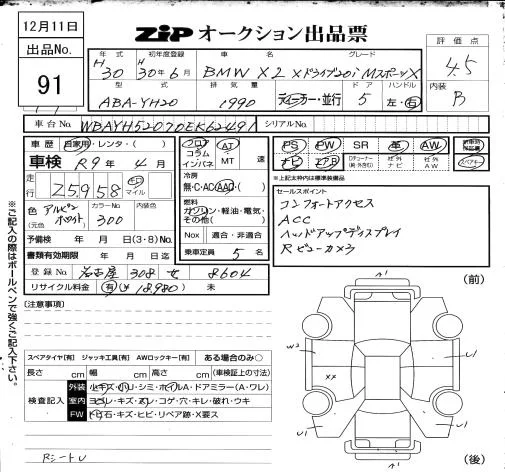 12月11日
ZIP オークション出品票
出品No.
91
年式 初年度登録 車名 グレード
H30 30年6月 BMW X2 xドライブ20i MスポーツX
評価点
4.5
型式 排気量 ドア ハンドル
ABA-YH20 1990 ディーラー・並行 5 左・右
内装
B
車台No. WBAYH52070EK62491 シリアルNo.
車歴 自家用・レンタ・( )
車検 R9年4月
走行 25958 キロ マイル
色 アルピンホワイト (元色) カラーNo. 300 内装色
予備検 年 月 日(3・8)No.
書類有効期限 年 月 日迄
登録No. 名古屋 308 せ 8604
リサイクル料金 有(¥18,980) 未
フロア コラム インパネ
AT MT 速
冷房
無・C・AC・AAC・( )
燃料
ガソリン・軽油・電気・その他( )
Nox 適合・非適合
乗車定員 5 名
PS PW SR 革 AW
ナビ エアB 社外ナビ 社外AW
スペアキー
※上記太枠内は標準装備品
セールスポイント
コンフォートアクセス
ACC
ヘッドアップディスプレイ
Rビューカメラ
(注意事項)
スペアタイヤ[有] ジャッキ工具[有] AWロックキー[有] ある場合のみ○
長さ cm 幅 cm 高さ cm (車検証上の寸法)
検査記入
外装 小キズ・小U・シミ・ホイルA・ドアミラー(A・ワレ)
室内 ヨゴレ・キズ・スレ・コゲ・穴・キレ・破れ・ウキ
FW トビ石・キズ・ヒビ・リペア跡・X要ス
RシートU
※ご記入の際はボールペンで強くご記入下さい。
(前)
A1
W2
U1
XX
U1
A1
(後)